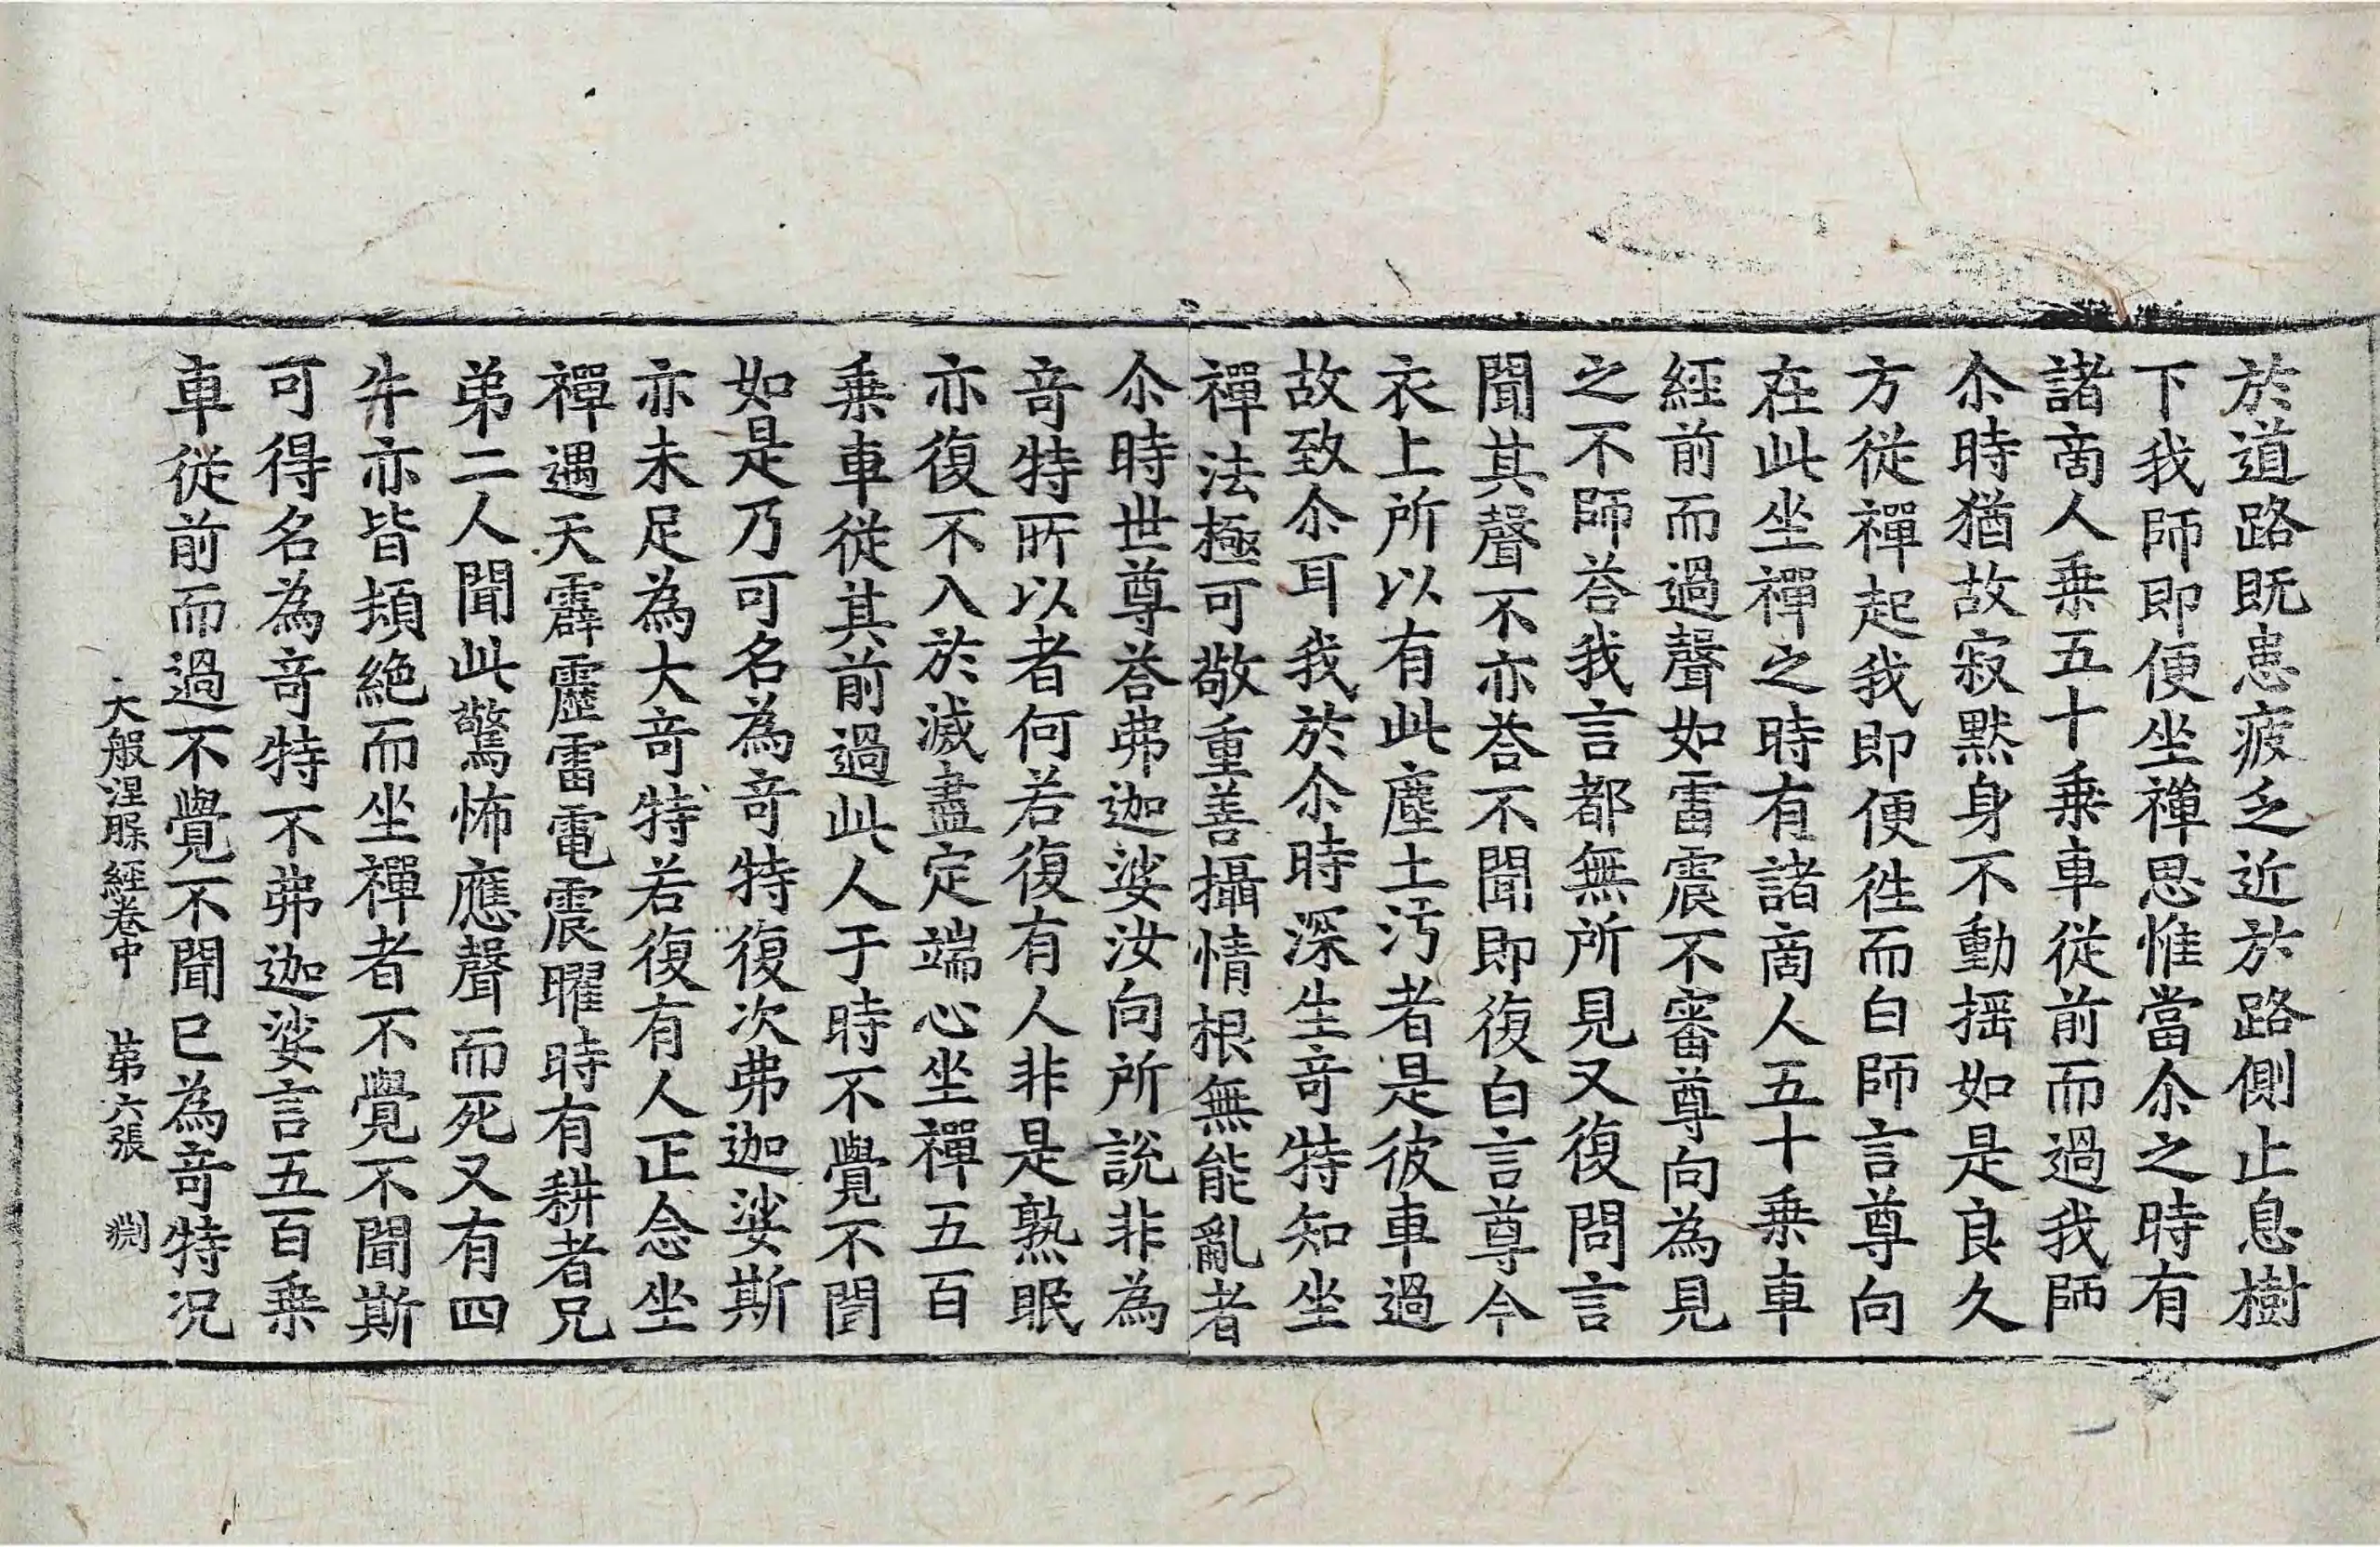 於道路既患疲乏近於路側止息樹
下我師即便坐禪思惟當尒之時有
諸啇人乗五十乗車從前而過我師
尒時猶故寂黙身不動揺如是良久
方從禪起我即便徃而白師言尊向
在此坐禪之時有諸啇人五十乗車
經前而過聲如雷震不審尊向為見
之不師荅我言都無所見又復問言
聞其聲不亦荅不聞即復白言尊今
衣上所以有此塵土汚者是彼車過
故致尒耳我於尒時深生竒特知坐
禪法極可敬重善攝情根無能亂者
尒時世尊荅弗迦娑汝向所說非為
竒特所以者何若復有人非是熟眠
亦復不入於滅盡定端心坐禪五百
乗車從其前過此人于時不覺不聞
如是乃可名為竒特復次弗迦娑斯
亦未足為大竒特若復有人正念坐
禪遇天霹靂雷電震曜時有耕者兄
弟二人聞此驚怖應聲而死又有四
牛亦皆頓絶而坐禪者不覺不聞斯
可得名為竒特不弗迦娑言五百乗
車從前而過不覺不聞已為竒特況
大般涅槃經卷中 第六張 渕